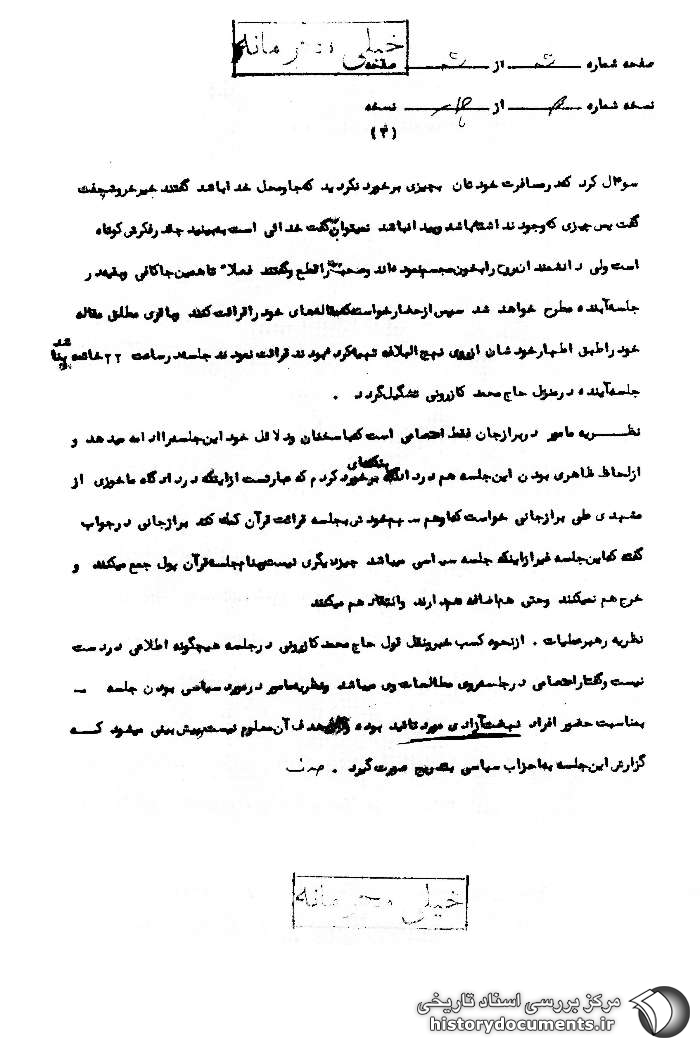 خیلی محرمانه
صفحه شماره از صفحه
نسخه شماره از نسخه
(۳)
سوءال کرد که در مسافرت خودتان بچیزی برخورد نکردید که جا و محل خدا باشد گفتند خیر خروشچف گفت
گفت پس چیزی که وجود نداشته باشد و پیدا نباشد نمیتوان گفت خدائی است به بینید چقدر فکرش کوتاه
است ولی دانشمند آنروی را بخون مجسم نموده اند و صحبت را قطع و گفتند فعلا تا همین جا کافی و بقیه در
جلسه آینده مطرح خواهد شد سپس از حضار خواست که مقاله های خود را قرائت کنند و باقری مطلق مقاله
خود را طبق اظهار خودشان از روی نهج البلاغه تهیه کرده بودند قرائت نمودند جلسه در ساعت ۲۲ خاتمه و بنا شد
جلسه آینده در منزل حاج محمد کازرونی تشکیل گردد .
نظریه مامور در برازجان فقط اختصاصی است که با سخنان و دلائل خود این جلسه را ادامه میدهد و
از لحاظ ظاهری بودن این جلسه هم در دادگاه بنکته‌ای برخورد کردم که عبارتست از اینکه در دادگاه ماخوزی از
مشهدی علی برازجانی خواست که او هم سهم خودش بجلسه قرائت قرآن کمک کند برازجانی در جواب
گفته که این جلسه غیر از اینکه جلسه سیاسی میباشد چیز دیگری نیست بنام جلسه قرآن پول جمع میکنند و
خرج هم نمیکنند و حتی هم اضافه هم دارند و انتقاد هم میکنند
نظریه رهبر عملیات . از نحوه کسب خبر و نقل قول حاج محمد کازرونی در جلسه هیچگونه اطلاعی در دست
نیست و گفتار اختصاصی در جلسه روی مطالعات وی میباشد و نظریه مامور در مورد سیاسی بودن جلسه –
بمناسبت حضور افراد نهضت آزادی مورد تائید بوده هدف آن معلوم نیست و پیش بینی میشود که
گزارش این جلسه به احزاب سیاسی بتدریج صورت گیرد .
خیلی محرمانه
مرکز بررسی اسناد تاریخی
historydocuments.ir